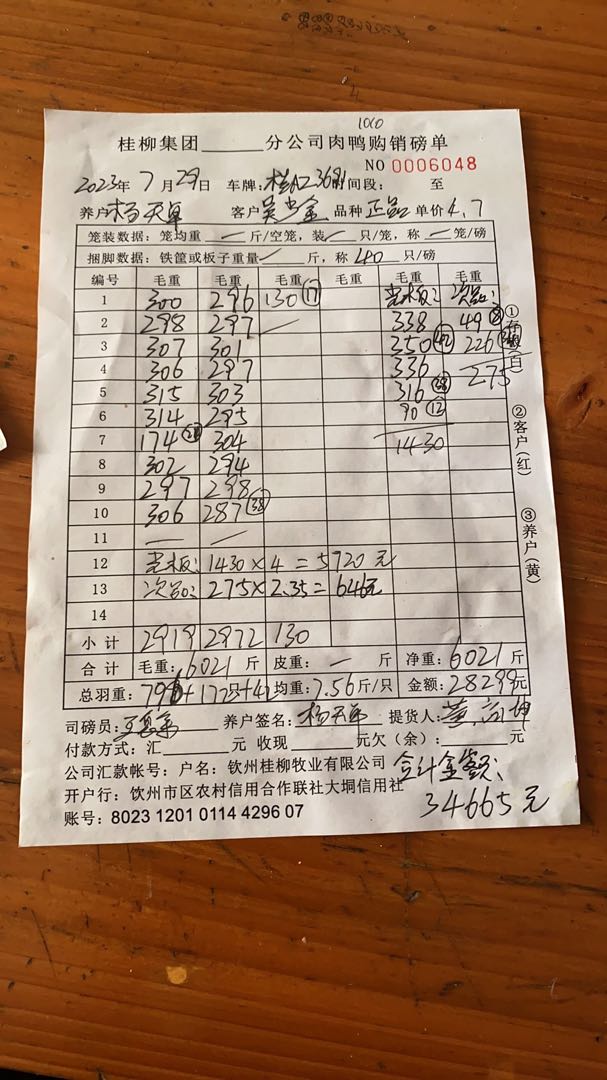 1000
桂柳集团 分公司肉鸭购销磅单
NO 0006048
2023年 7月29日 车牌:桂A2368 时间段: 至
养户 杨天军 客户 品种 正品 单价 4.7
笼装数据:笼均重 — 斤/空笼,装 — 只/笼,称 — 笼/磅
捆脚数据:铁筐或板子重量 — 斤,称 40 只/磅
编号 毛重 毛重 毛重 毛重 毛重 毛重
1 300 296 130 ⑰ 老板: 次品:
2 298 297 — 338 49 ⑧
3 307 301 350 226
4 306 297 336 275
5 315 303 316 38
6 314 295 90 ⑫
7 174 304 1430
8 302 294
9 297 298
10 306 287 38
11 — —
12 老板: 1430×4=5720元
13 次品: 275×2.35=646元
14
小计 2919 2972 130
合计 毛重:6021斤 皮重: — 斤 净重:6021斤
总羽重:796+177只+42 均重:7.56斤/只 金额:28299元
司磅员: 养户签名:杨天军 提货人:
付款方式:汇 元 收现 元欠(余): 元
公司汇款帐号:户名:钦州桂柳牧业有限公司 合计金额:
开户行:钦州市区农村信用合作联社大垌信用社 34665元
账号:8023 1201 0114 4296 07
①存根(白)
②客户(红)
③养户(黄)